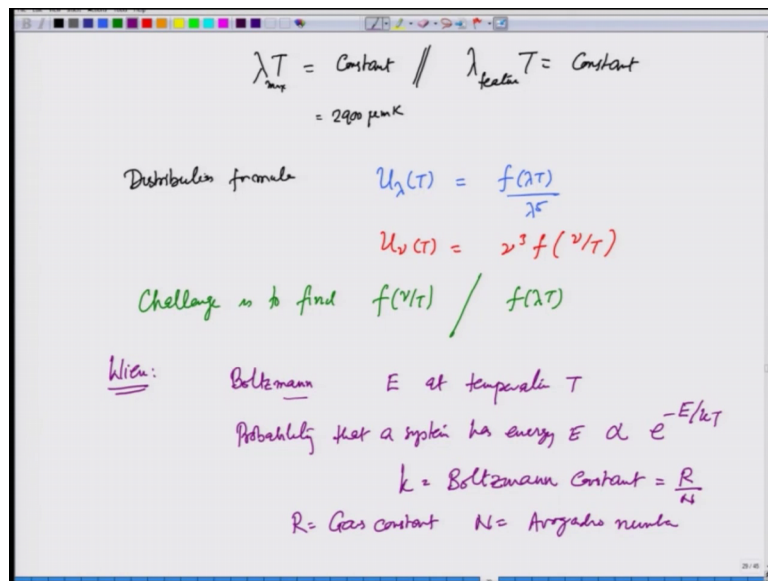 λ_max T = Constant // λ_feature T = Constant
= 2900 μmK
Distribution formula U_λ(T) = f(λT)/λ⁵
U_ν(T) = ν³ f(ν/T)
Challenge is to find f(ν/T) / f(λT)
Wien: Boltzmann E at temperature T
Probability that a system has energy E ∝ e^(-E/kT)
k = Boltzmann Constant = R/N
R = Gas constant N = Avogadro number